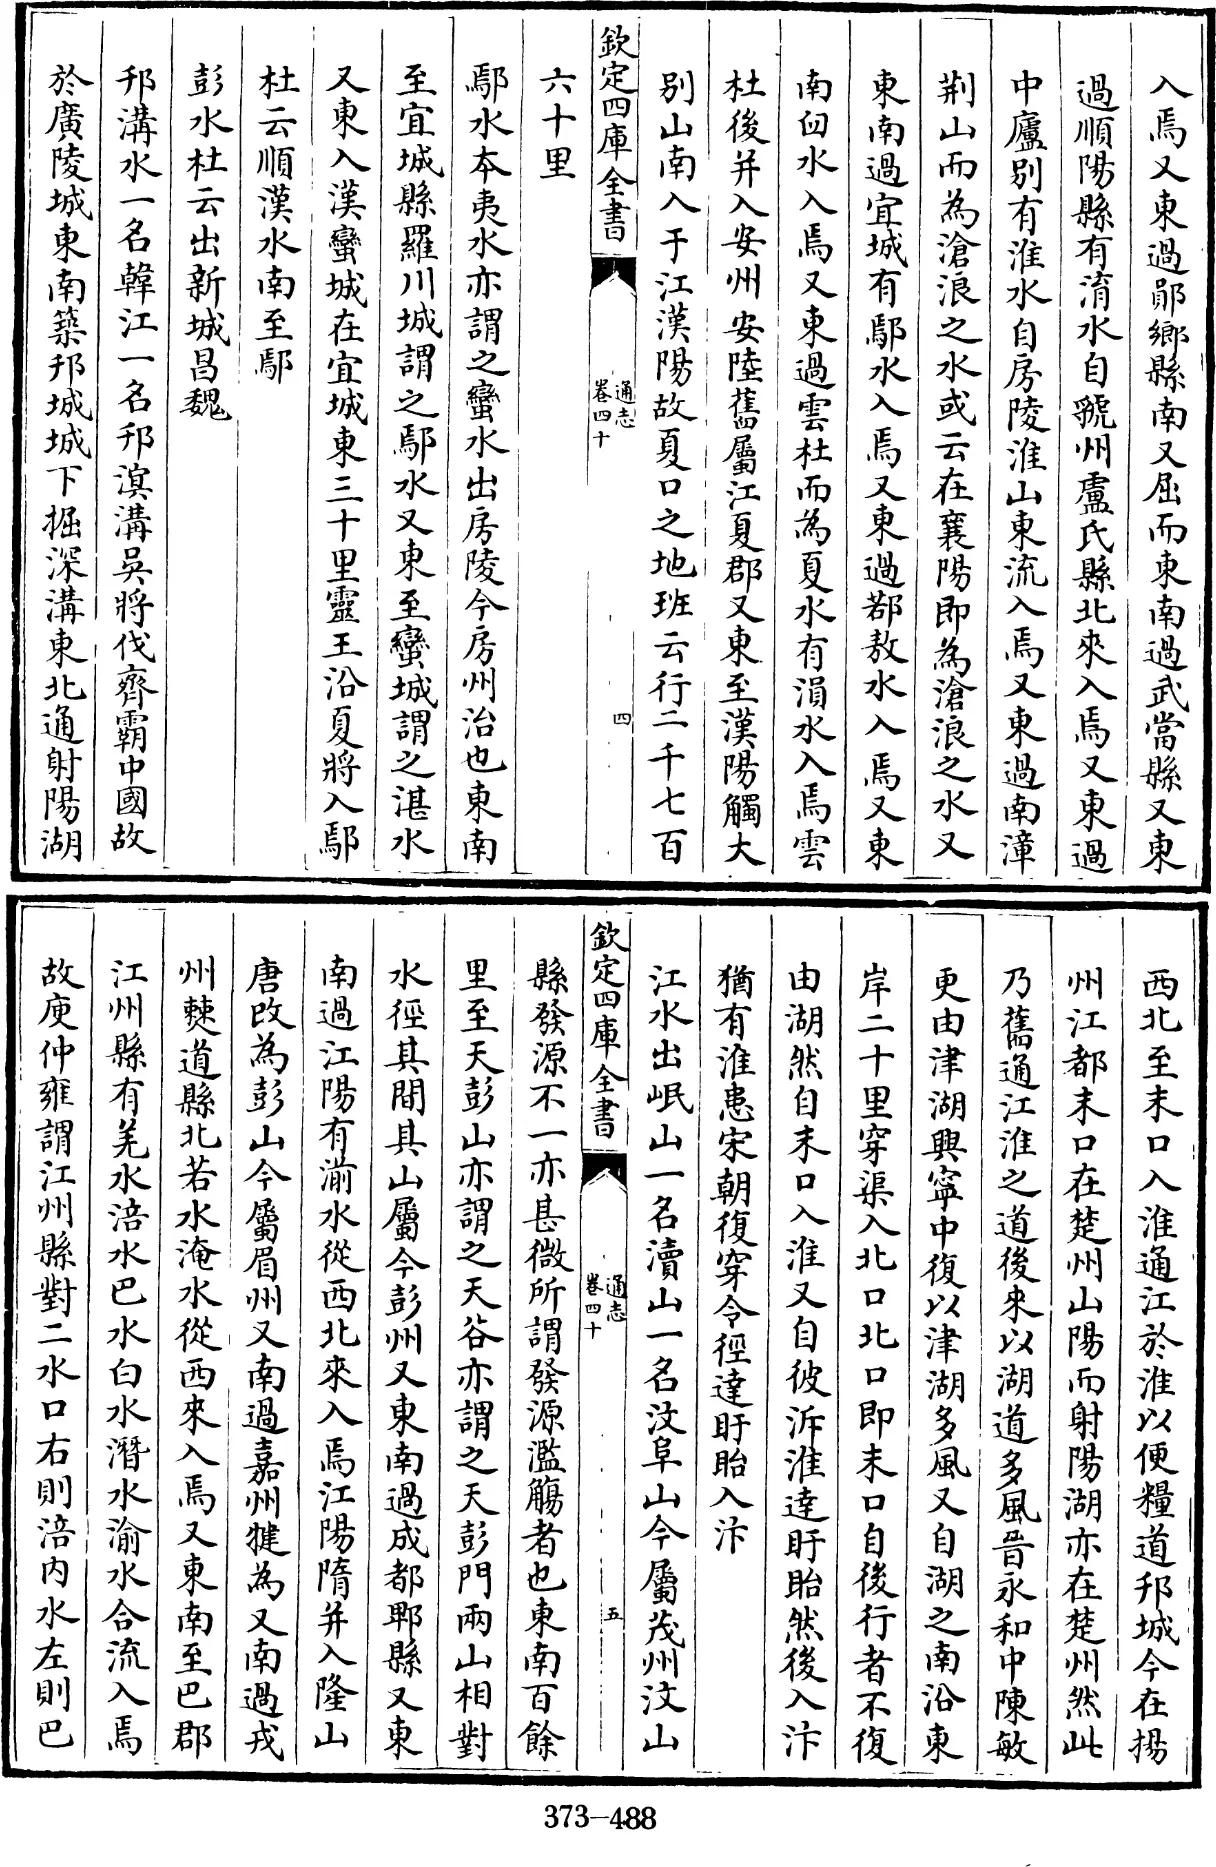 入焉又東過鄖鄉縣南又屈而東南過武當縣又東
過順陽縣有淯水自虢州盧氏縣北來入焉又東過
中廬別有淮水自房陵淮山東流入焉又東過南漳
荆山而為滄浪之水或云在襄陽即為滄浪之水又
東南過宜城有鄢水入焉又東過鄀敖水入焉又東
南臼水入焉又東過雲杜而為夏水有溳水入焉雲
杜後并入安州安陸舊屬江夏郡又東至漢陽觸大
别山南入于江漢陽故夏口之地班云行二千七百
欽定四庫全書
通志
卷四十
四
六十里
鄢水本夷水亦謂之蠻水出房陵今房州治也東南
至宜城縣羅川城謂之鄢水又東至蠻城謂之湛水
又東入漢蠻城在宜城東三十里靈王沿夏將入鄢
杜云順漢水南至鄢
彭水杜云出新城昌魏
邗溝水一名韓江一名邗溟溝吳將伐齊霸中國故
於廣陵城東南築邗城城下掘深溝東北通射陽湖
西北至末口入淮通江於淮以便糧道邗城今在揚
州江都末口在楚州山陽而射陽湖亦在楚州然此
乃舊通江淮之道後來以湖道多風晉永和中陳敏
更由津湖興寧中復以津湖多風又自湖之南沿東
岸二十里穿渠入北口北口即末口自後行者不復
由湖然自末口入淮又自彼泝淮達盱眙然後入汴
猶有淮患宋朝復穿令徑達盱眙入汴
江水出岷山一名瀆山一名汶阜山今屬茂州汶山
欽定四庫全書
通志
卷四十
五
縣發源不一亦甚微所謂發源濫觴者也東南百餘
里至天彭山亦謂之天谷亦謂之天彭門兩山相對
水徑其間其山屬今彭州又東南過成都郫縣又東
南過江陽有湔水從西北來入焉江陽隋并入隆山
唐改為彭山今屬眉州又南過嘉州犍為又南過戎
州僰道縣北若水淹水從西來入焉又東南至巴郡
江州縣有羌水涪水巴水白水潛水渝水合流入焉
故庾仲雍謂江州縣對二水口右則涪內水左則巴
373-488